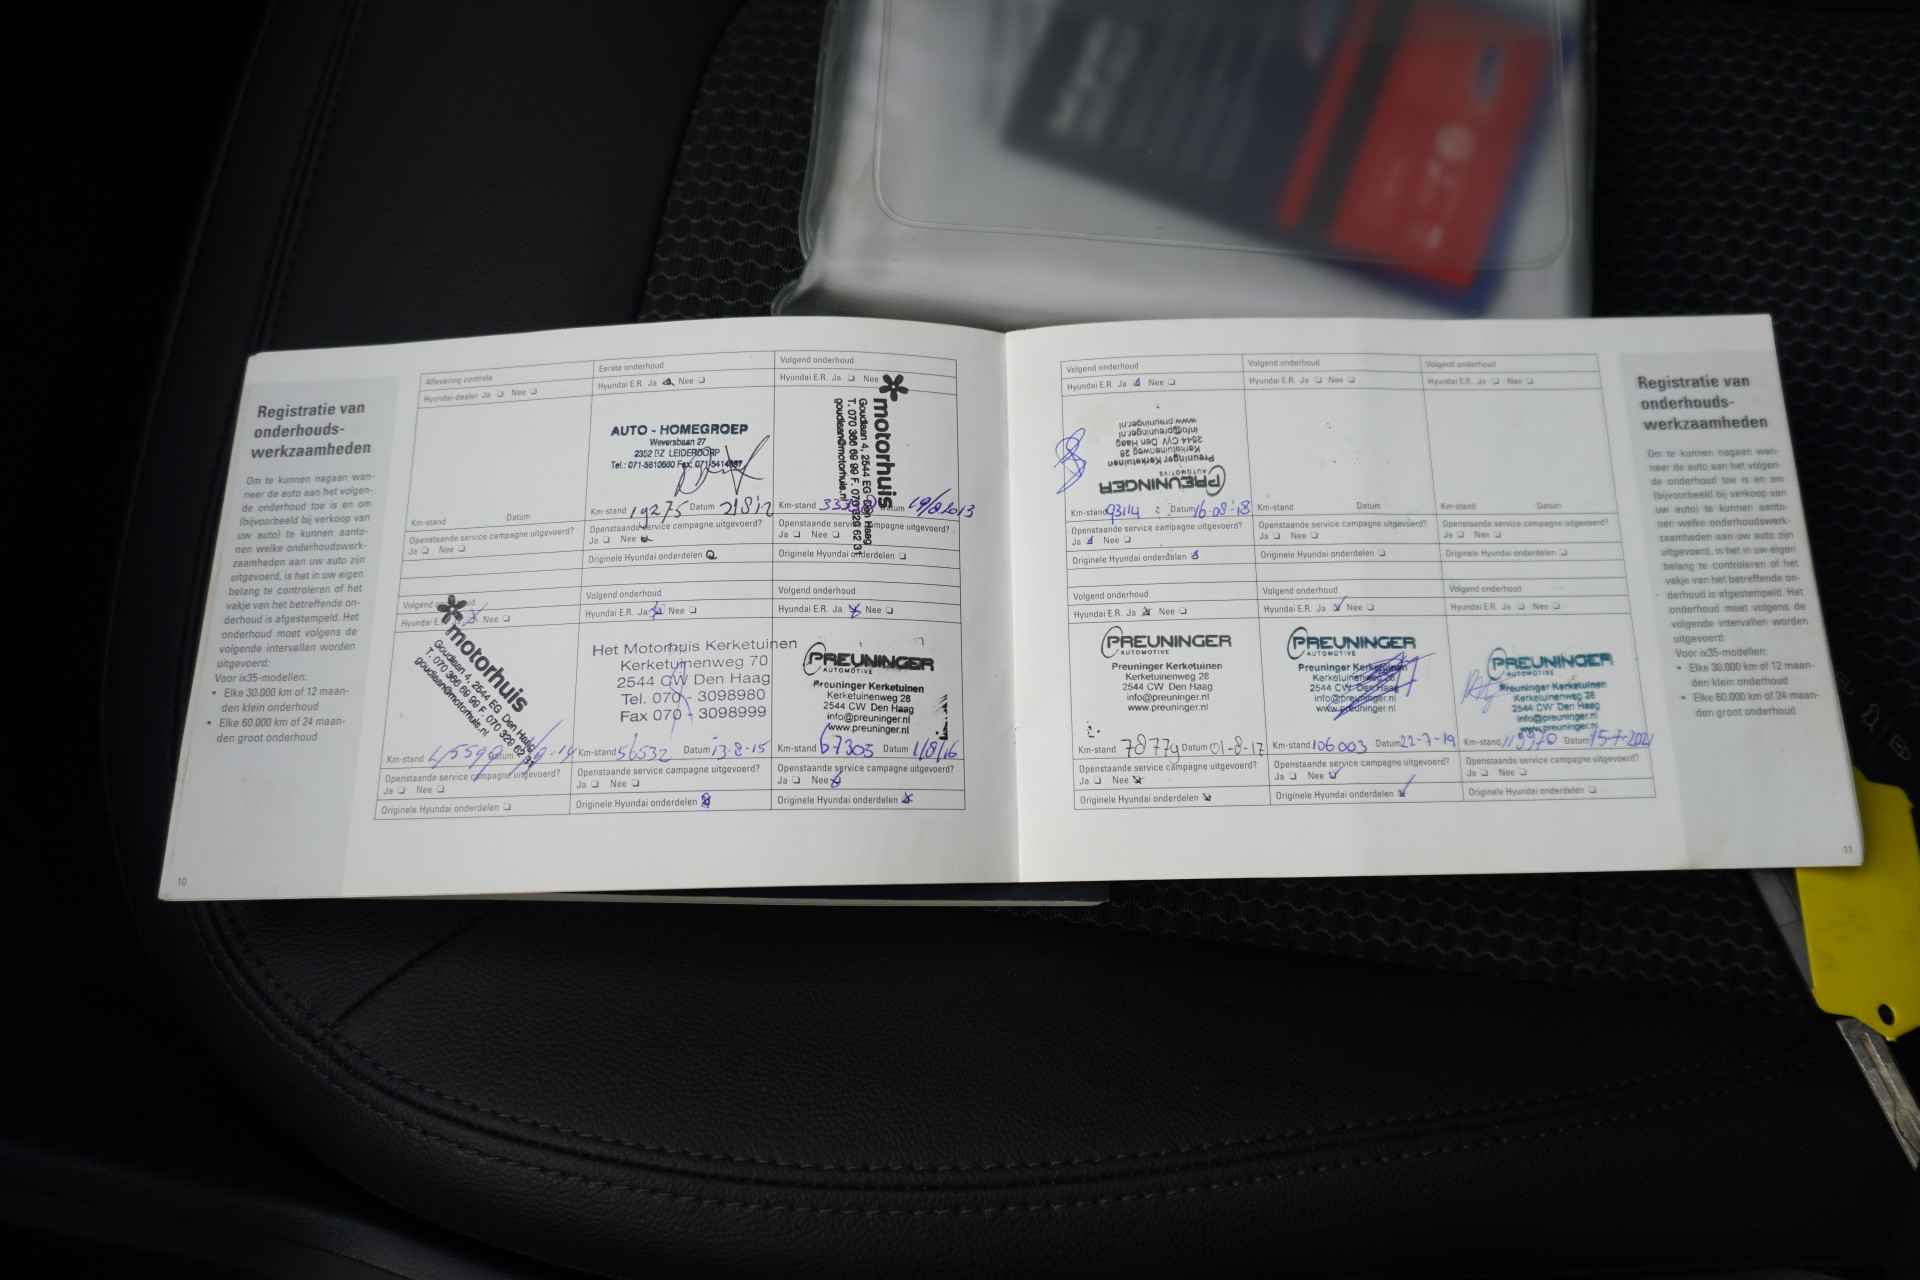 Registratie van
onderhouds-
werkzaamheden
Om te kunnen nagaan wan-
neer de auto aan het volgen-
de onderhoud toe is en om
(bijvoorbeeld bij verkoop van
uw auto) te kunnen aanto-
nen welke onderhoudswerk-
zaamheden aan uw auto zijn
uitgevoerd, is het in uw eigen
belang te controleren of het
vakje van het betreffende on-
derhoud is afgestempeld. Het
onderhoud moet volgens de
volgende intervallen worden
uitgevoerd:
Voor ix35-modellen:
• Elke 30.000 km of 12 maan-
den klein onderhoud
• Elke 60.000 km of 24 maan-
den groot onderhoud
10
Aflevering controle
Hyundai-dealer Ja Nee
Km-stand Datum
Openstaande service campagne uitgevoerd?
Ja Nee
Eerste onderhoud
Hyundai E.R. Ja Nee
AUTO - HOMEGROEP
Weversbaan 27
2352 BZ LEIDERDORP
Tel.: 071-5810600 Fax: 071-
Km-stand 19275 Datum
Openstaande service campagne uitgevoerd?
Ja Nee
Originele Hyundai onderdelen
Volgend onderhoud
Hyundai E.R. Ja Nee
motorhuis
Goudlaan 4, 2544 EG Den Haag
T. 070 366 69 99 F. 070 329 62 31
goudlaan@motorhuis.nl
Km-stand Datum 19/8/2013
Openstaande service campagne uitgevoerd?
Ja Nee
Originele Hyundai onderdelen
Volgend
Hyundai Nee
motorhuis
Goudlaan 4, 2544 EG Den Haag
T. 070 366 69 99 F. 070 329 62 31
goudlaan@motorhuis.nl
Km-stand
Openstaande service campagne uitgevoerd?
Ja Nee
Originele Hyundai onderdelen
Volgend onderhoud
Hyundai E.R. Ja Nee
Het Motorhuis Kerketuinen
Kerketuinenweg 70
2544 CW Den Haag
Tel. 070 - 3098980
Fax 070 - 3098999
Km-stand 56532 Datum 13-8-15
Openstaande service campagne uitgevoerd?
Ja Nee
Originele Hyundai onderdelen
Volgend onderhoud
Hyundai E.R. Ja Nee
PREUNINGER
AUTOMOTIVE
Preuninger Kerketuinen
Kerketuinenweg 28
2544 CW Den Haag
info@preuninger.nl
www.preuninger.nl
Km-stand 67305 Datum 1/8/16
Openstaande service campagne uitgevoerd?
Ja Nee
Originele Hyundai onderdelen
Volgend onderhoud
Hyundai E.R. Ja Nee
PREUNINGER
AUTOMOTIVE
Preuninger Kerketuinen
Kerketuinenweg 28
2544 CW Den Haag
info@preuninger.nl
www.preuninger.nl
Km-stand 93114 Datum 16-08-18
Openstaande service campagne uitgevoerd?
Ja Nee
Originele Hyundai onderdelen
Volgend onderhoud
Hyundai E.R. Ja Nee
Km-stand Datum
Openstaande service campagne uitgevoerd?
Ja Nee
Originele Hyundai onderdelen
Volgend onderhoud
Hyundai E.R. Ja Nee
Km-stand Datum
Openstaande service campagne uitgevoerd?
Ja Nee
Originele Hyundai onderdelen
Volgend onderhoud
Hyundai E.R. Ja Nee
PREUNINGER
AUTOMOTIVE
Preuninger Kerketuinen
Kerketuinenweg 28
2544 CW Den Haag
info@preuninger.nl
www.preuninger.nl
Km-stand 78779 Datum 01-8-17
Openstaande service campagne uitgevoerd?
Ja Nee
Originele Hyundai onderdelen
Volgend onderhoud
Hyundai E.R. Ja Nee
PREUNINGER
AUTOMOTIVE
Preuninger Kerketuinen
Kerketuinenweg 28
2544 CW Den Haag
info@preuninger.nl
www.preuninger.nl
Km-stand 106003 Datum 22-7-19
Openstaande service campagne uitgevoerd?
Ja Nee
Originele Hyundai onderdelen
Volgend onderhoud
Hyundai E.R. Ja Nee
PREUNINGER
AUTOMOTIVE
Preuninger Kerketuinen
Kerketuinenweg 28
2544 CW Den Haag
info@preuninger.nl
www.preuninger.nl
Km-stand Datum 15-7-2021
Openstaande service campagne uitgevoerd?
Ja Nee
Originele Hyundai onderdelen
Registratie van
onderhouds-
werkzaamheden
Om te kunnen nagaan wan-
neer de auto aan het volgen-
de onderhoud toe is en om
(bijvoorbeeld bij verkoop van
uw auto) te kunnen aanto-
nen welke onderhoudswerk-
zaamheden aan uw auto zijn
uitgevoerd, is het in uw eigen
belang te controleren of het
vakje van het betreffende on-
derhoud is afgestempeld. Het
onderhoud moet volgens de
volgende intervallen worden
uitgevoerd:
Voor ix35-modellen:
• Elke 30.000 km of 12 maan-
den klein onderhoud
• Elke 60.000 km of 24 maan-
den groot onderhoud
11